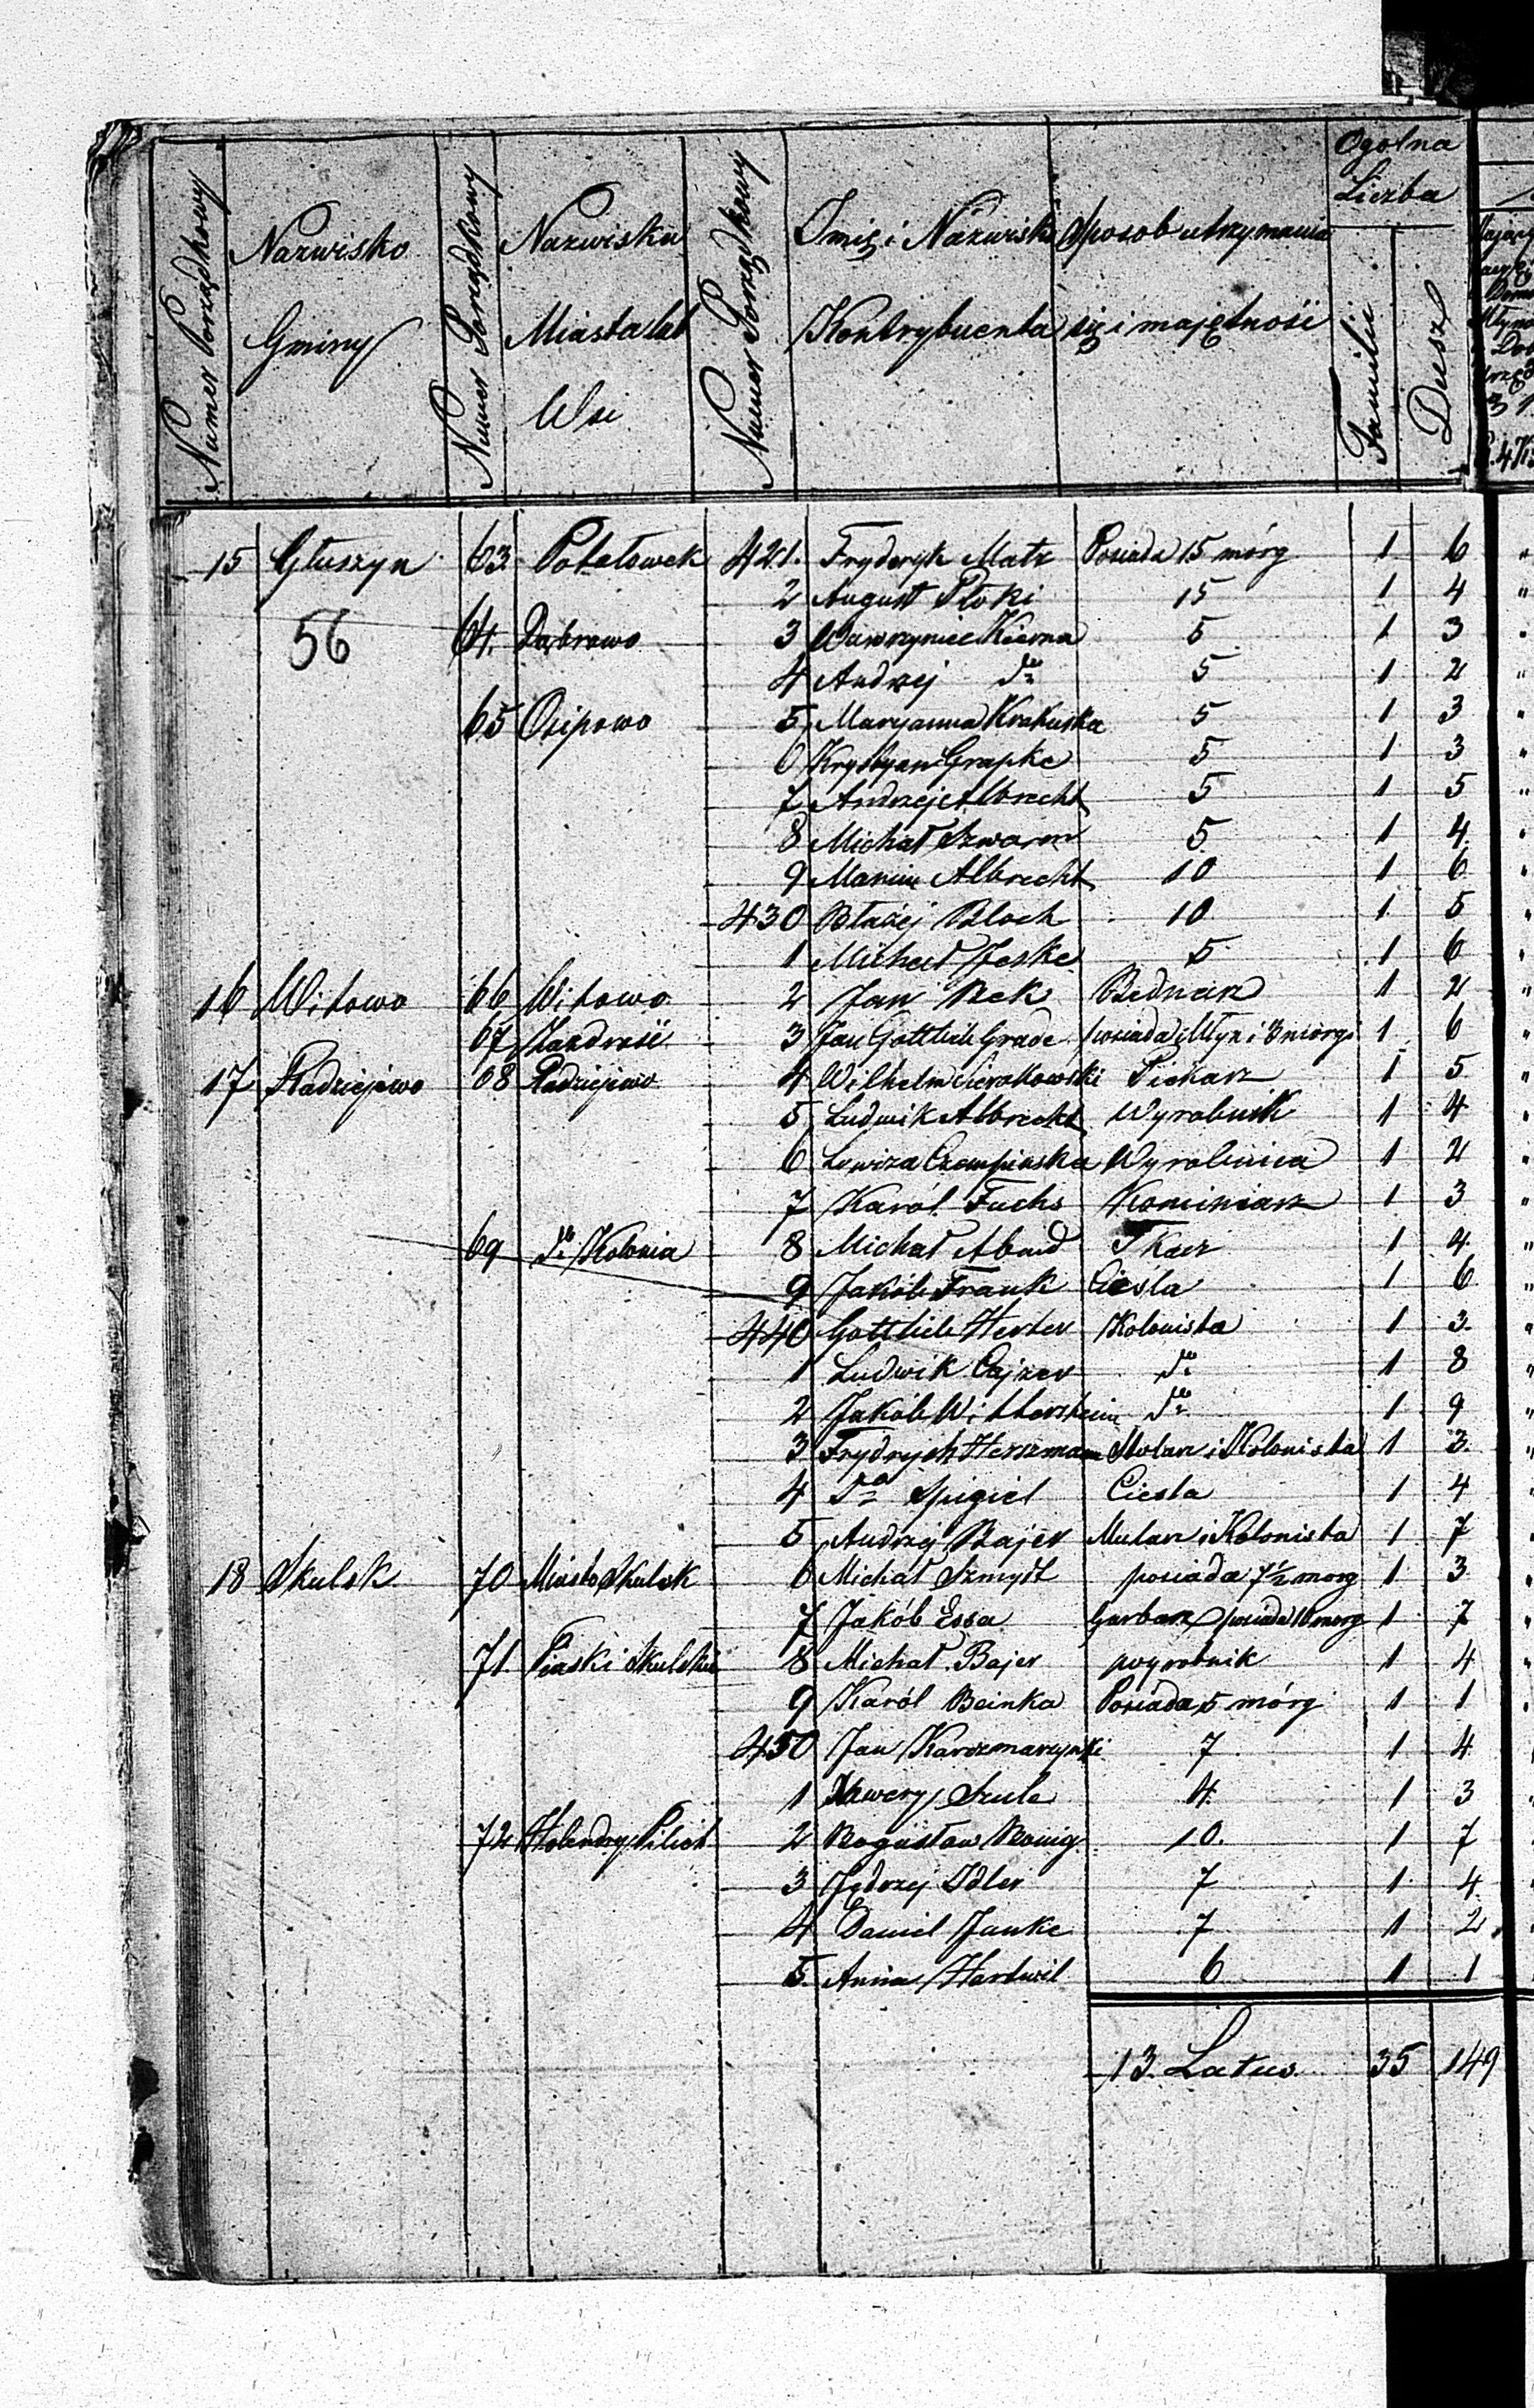 Numer Porządkowy | Nazwisko Gminy | Numer Porządkowy | Nazwisko Miasta lub Wsi | Numer Porządkowy | Imię i Nazwisko Kontrybuenta | Sposob utrzymania się i majętność | Ogolna Liczba Familii | Dusz
15 Głuszyn 63 Potołowek 421. Fryderyk Matz Posiada 15 mórg 1 6
2 August Płoki 15 1 4
56 64. Dąbrowo 3 Wawrzyniec Kierna 5 1 3
4 Andrzej do 5 1 2
65 Osipowo 5 Maryanna Krakuska 5 1 3
6 Krystyan Grapke 5 1 3
7 Andrzej Albrecht 5 1 5
8 Michał Szwarm 5 1 4
9 Marcin Albrecht 10 1 6
430 Błażej Bloch 10 1 5
1 Michał Jeske 5 1 6
16 Witowo 66 Witowo 2 Jan Bek Bednarz 1 2
67 3 Jan Gottlieb Grade posiada Młyn i 3 morgi 1 6
17 Radziejewo 68 Radziejewo 4 Wilhelm Sierakowski Piekarz 1 5
5 Ludwik Albrecht Wyrobnik 1 4
6 Lowiza Czempinska Wyrobnica 1 2
7 Karól Fuchs Kominiarz 1 3
69 do Kolonia 8 Michał Abend Tkacz 1 4
9 Jakób Frank Cieśla 1 6
440 Gottlieb Herter Kolonista 1 3
1 Ludwik Cajzer do 1 8
2 Jakób Wittersheim do 1 9
3 Frydrych Herszman Stolarz i Kolonista 1 3
4 do Spigiel Ciesla 1 4
5 Andrzej Bajer Mularz i Kolonista 1 7
18 Skulsk 70 Miasto Skulsk 6 Michał Szmydt posiada 7½ morg 1 3
7 Jakób Essa Garbarz posiada 10 morg 1 7
71 Piaski Skulskie 8 Michał Bajer wyrobnik 1 4
9 Karól Beinka Posiada 5 mórg 1 1
450 Jan Karczmarzynki 7 1 4
1 Xawery Szulc 4 1 3
72 Holendry Pilich 2 Bogusław Konig 10. 1 7
3 Jędrzej Idler 7 1 4
4 Daniel Janke 7 1 2
5. Anna Hartwil 6 1 1
13. Latus 35 149